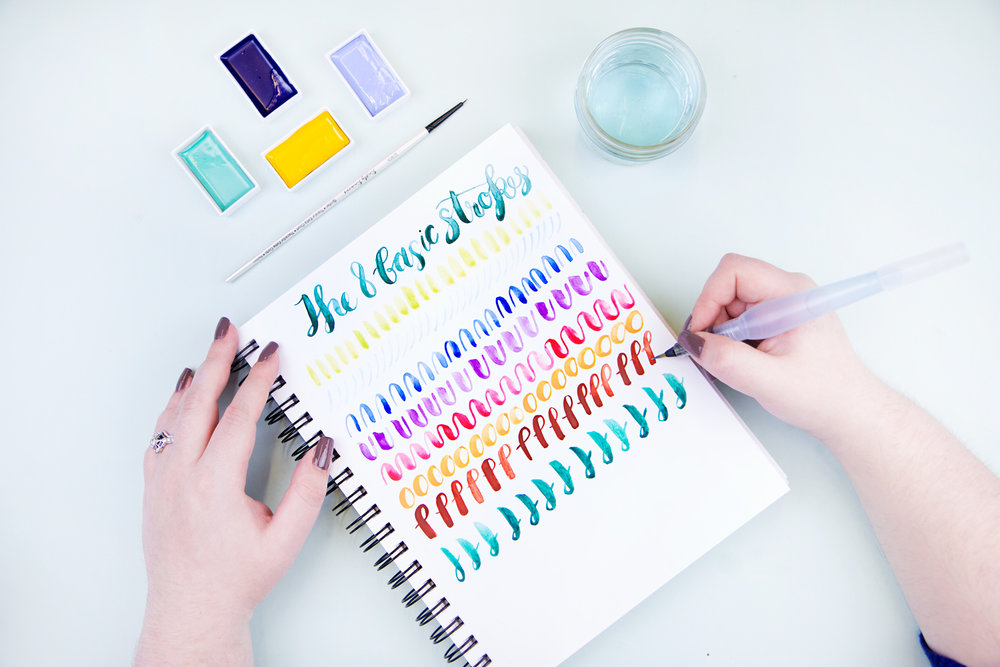 the 8 basic strokes